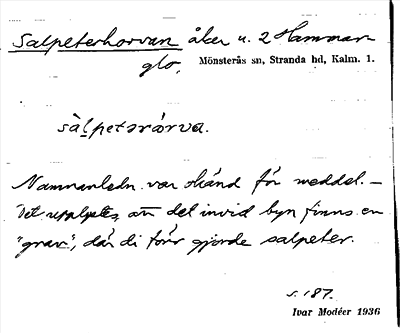 Salpeterhorvan åker u. 2 Hammar-
glo, Mönsterås sn, Stranda hd, Kalm. l.
sàlpetərårva.
Namnanledn. var okänd för meddel. –
Det uppges, att det invid byn finns en
"grav", där di förr gjorde salpeter.
s. 187.
Ivar Modéer 1936